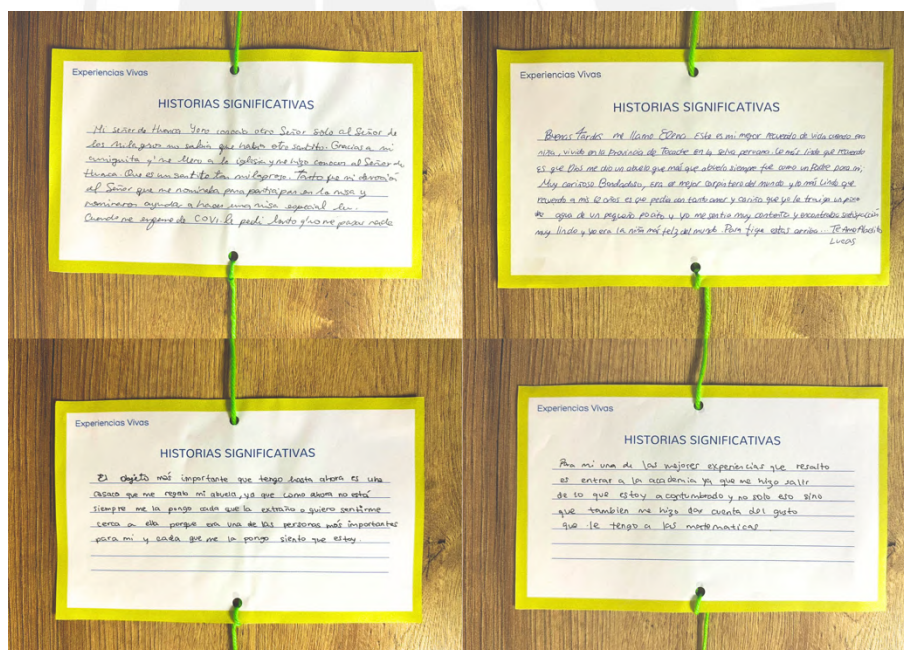 Experiencias Vivas
HISTORIAS SIGNIFICATIVAS
Mi señor de Huanca Yo no conocía otro Señor solo al Señor de
los Milagros no sabía que había otro santito. Gracias a mi
amiguita y me llevo a la iglesia y me hizo conocer al Señor de
Huanca. Que es un santito tan milagroso. Tanto fue mi devoción
al Señor que me nominaba para participar en la misa y
nominaron ayuda a hacer una misa especial
Cuando me enferme de COVI le pedi tanto q' no me pasara nada
Experiencias Vivas
HISTORIAS SIGNIFICATIVAS
Buenas Tardes me llamo Elena. Este es mi mejor Recuerdo de vida cuando era
niña, vivía en la Provincia de Tocache en la selva peruana. Lo más lindo que recuerdo
es que Dios me dio un abuelo que más que abuelo siempre fue como un Padre para mi,
Muy cariñoso Bondadoso, era el mejor carpintero del mundo y lo más lindo que
recuerdo a mis 12 años es que pedía con tanto amor y cariño que yo le traiga un poco
de agua de un pequeño pocito y yo me sentía muy contenta y encontraba satisfacción
muy lindo y yo era la niña más feliz del mundo. Para ti que estas arriba. Te Amo Placido
Lucas
Experiencias Vivas
HISTORIAS SIGNIFICATIVAS
El objeto más importante que tengo hasta ahora es una
casaca que me regaló mi abuela, ya que como ahora no está
siempre me la pongo cada que la extraño o quiero sentirme
cerca a ella porque era una de las personas más importantes
para mi y cada que me la pongo siento que estoy.
Experiencias Vivas
HISTORIAS SIGNIFICATIVAS
Para mi una de las mejores experiencias que resalto
es entrar a la academia ya que me hizo salir
de lo que estoy acortumbrado y no solo eso sino
que también me hizo dar cuenta del gusto
que le tengo a las matematicas